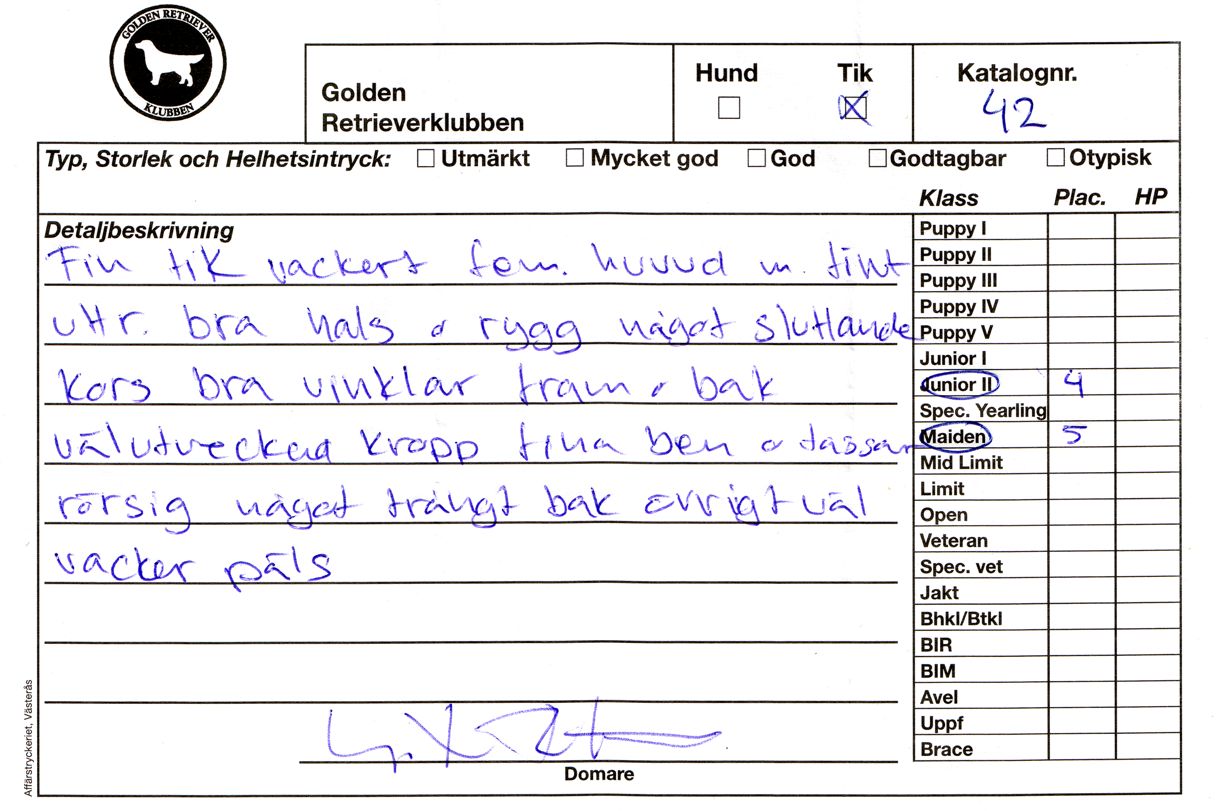 GOLDEN RETRIEVER
KLUBBEN
Golden
Retrieverklubben
Hund
Tik
Katalognr.
42
Typ, Storlek och Helhetsintryck: Utmärkt Mycket god God Godtagbar Otypisk
Klass Plac. HP
Detaljbeskrivning
Fin tik vackert fem. huvud m. fint
uttr. bra hals o rygg något sluttande
kors bra vinklar fram o bak
välutvecklad kropp fina ben o tassar
rörsig något trångt bak övrigt väl
vacker päls
Puppy I
Puppy II
Puppy III
Puppy IV
Puppy V
Junior I
Junior II 4
Spec. Yearling
Maiden 5
Mid Limit
Limit
Open
Veteran
Spec. vet
Jakt
Bhkl/Btkl
BIR
BIM
Avel
Uppf
Brace
Domare
Affärstryckeriet, Västerås